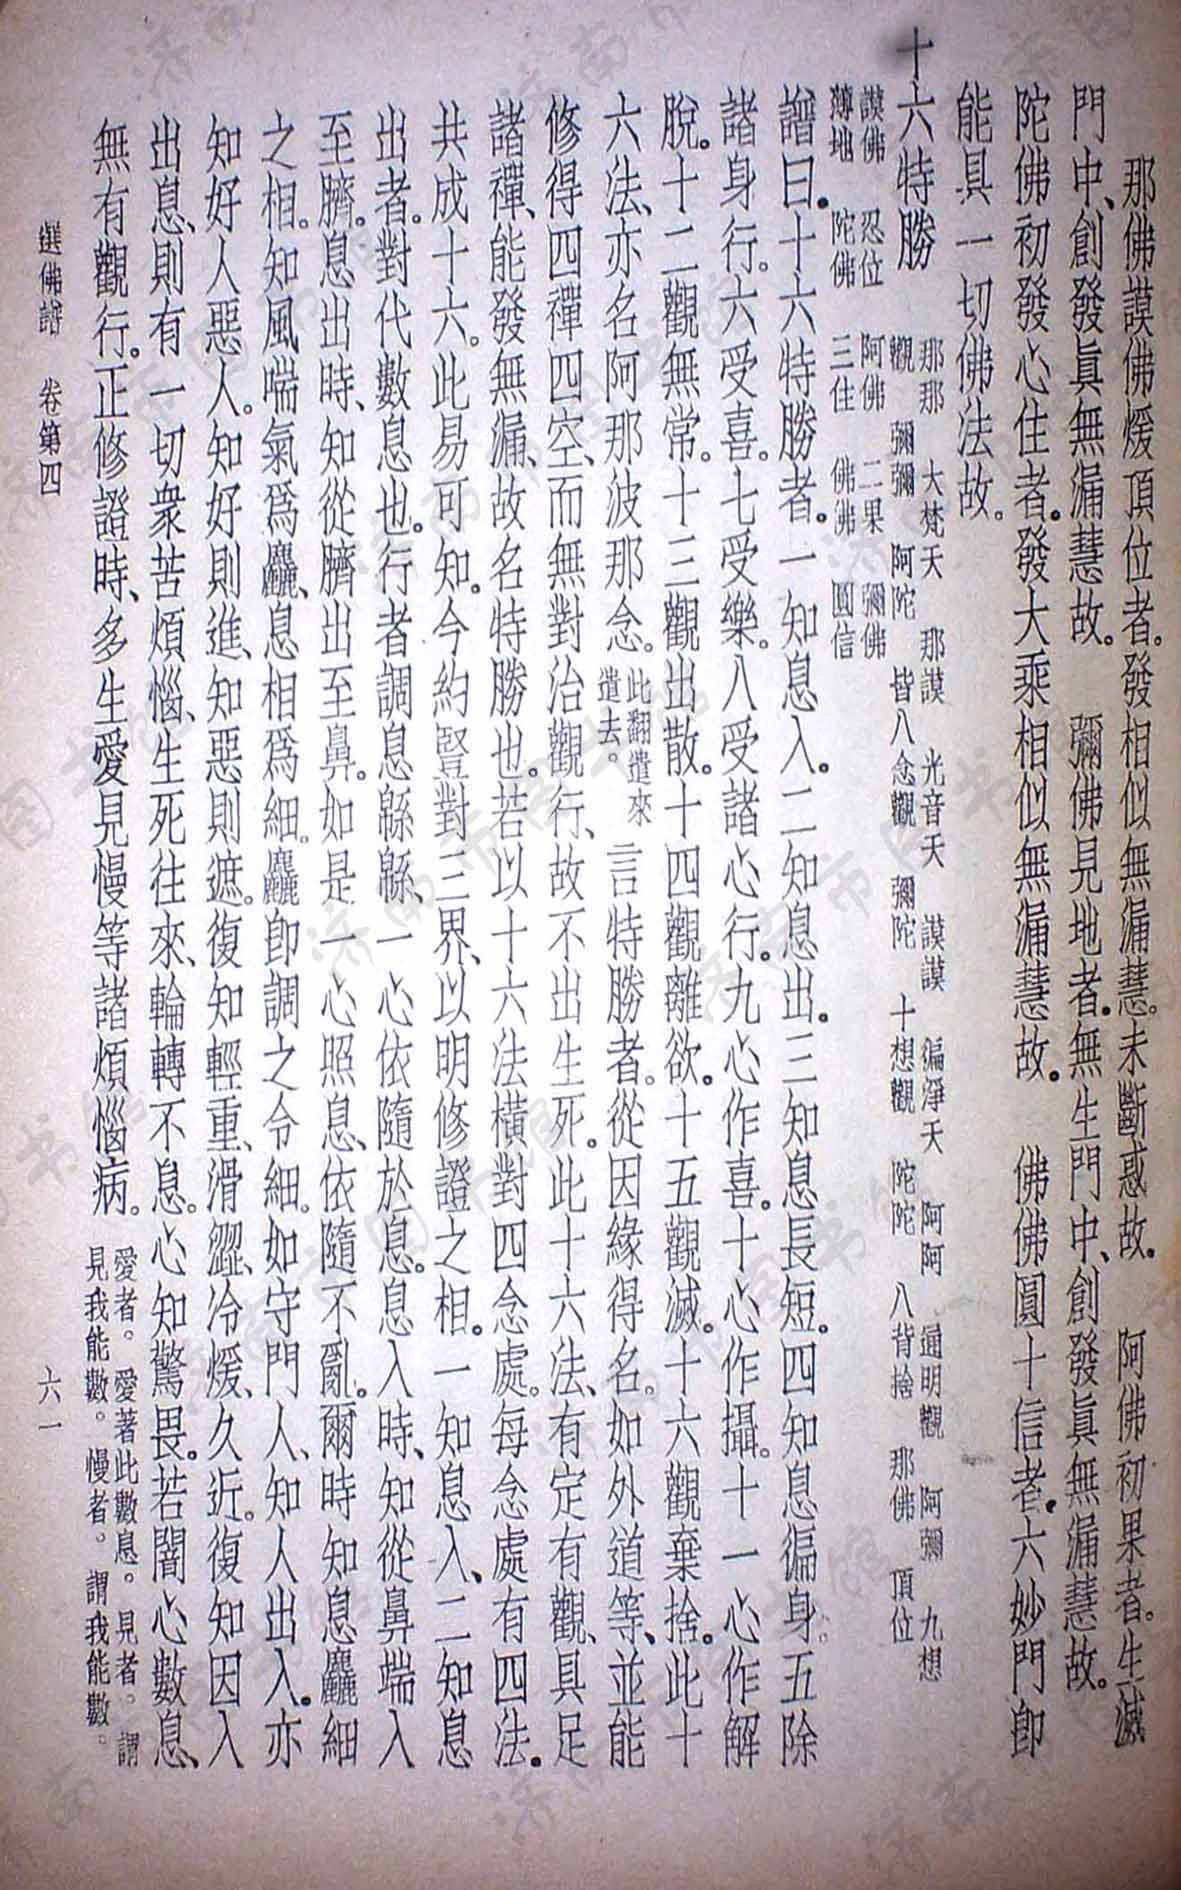 那佛謨佛煖頂位者。發相似無漏慧。未斷惑故。　阿佛初果者。生滅
門中、創發眞無漏慧故。　彌佛見地者。無生門中、創發眞無漏慧故。
陀佛初發心住者。發大乘相似無漏慧故。　佛佛圓十信者。六妙門卽
能具一切佛法故。
十六特勝
那那　大梵天　那謨　光音天　謨謨　徧淨天　阿阿　通明觀　阿彌　九想
觀　彌彌　阿陀　皆八念觀　彌陀　十想觀　陀陀　八背捨　那佛　頂位
謨佛　忍位　阿佛　二果　彌佛
薄地　陀佛　三住　佛佛　圓信
譜曰。十六特勝者。一知息入。二知息出。三知息長短。四知息徧身。五除
諸身行。六受喜。七受樂。八受諸心行。九心作喜。十心作攝。十一心作解
脫。十二觀無常。十三觀出散。十四觀離欲。十五觀滅。十六觀棄捨。此十
六法、亦名阿那波那念。此翻遣來遣去。言特勝者。從因緣得名。如外道等、並能
修得四禪四空、而無對治觀行、故不出生死。此十六法、有定有觀、具足
諸禪、能發無漏、故名特勝也。若以十六法橫對四念處。每念處有四法。
共成十六。此易可知。今約豎對三界、以明修證之相。一知息入、二知息
出者。對代數息也。行者調息緜緜、一心依隨於息。息入時、知從鼻端入
至臍。息出時、知從臍出至鼻。如是一心照息、依隨不亂。爾時知息麤細
之相。知風喘氣爲麤、息相爲細。麤卽調之令細。如守門人、知人出入。亦
知好人惡人。知好則進、知惡則遮。復知輕重、滑澀、冷煖、久近。復知因入
出息、則有一切衆苦煩惱、生死往來、輪轉不息。心知驚畏。若闇心數息、
無有觀行。正修證時、多生愛見慢等諸煩惱病。愛者。愛著此數息。見者。謂見我能數。慢者。謂我能數。
選佛譜　卷第四　六一